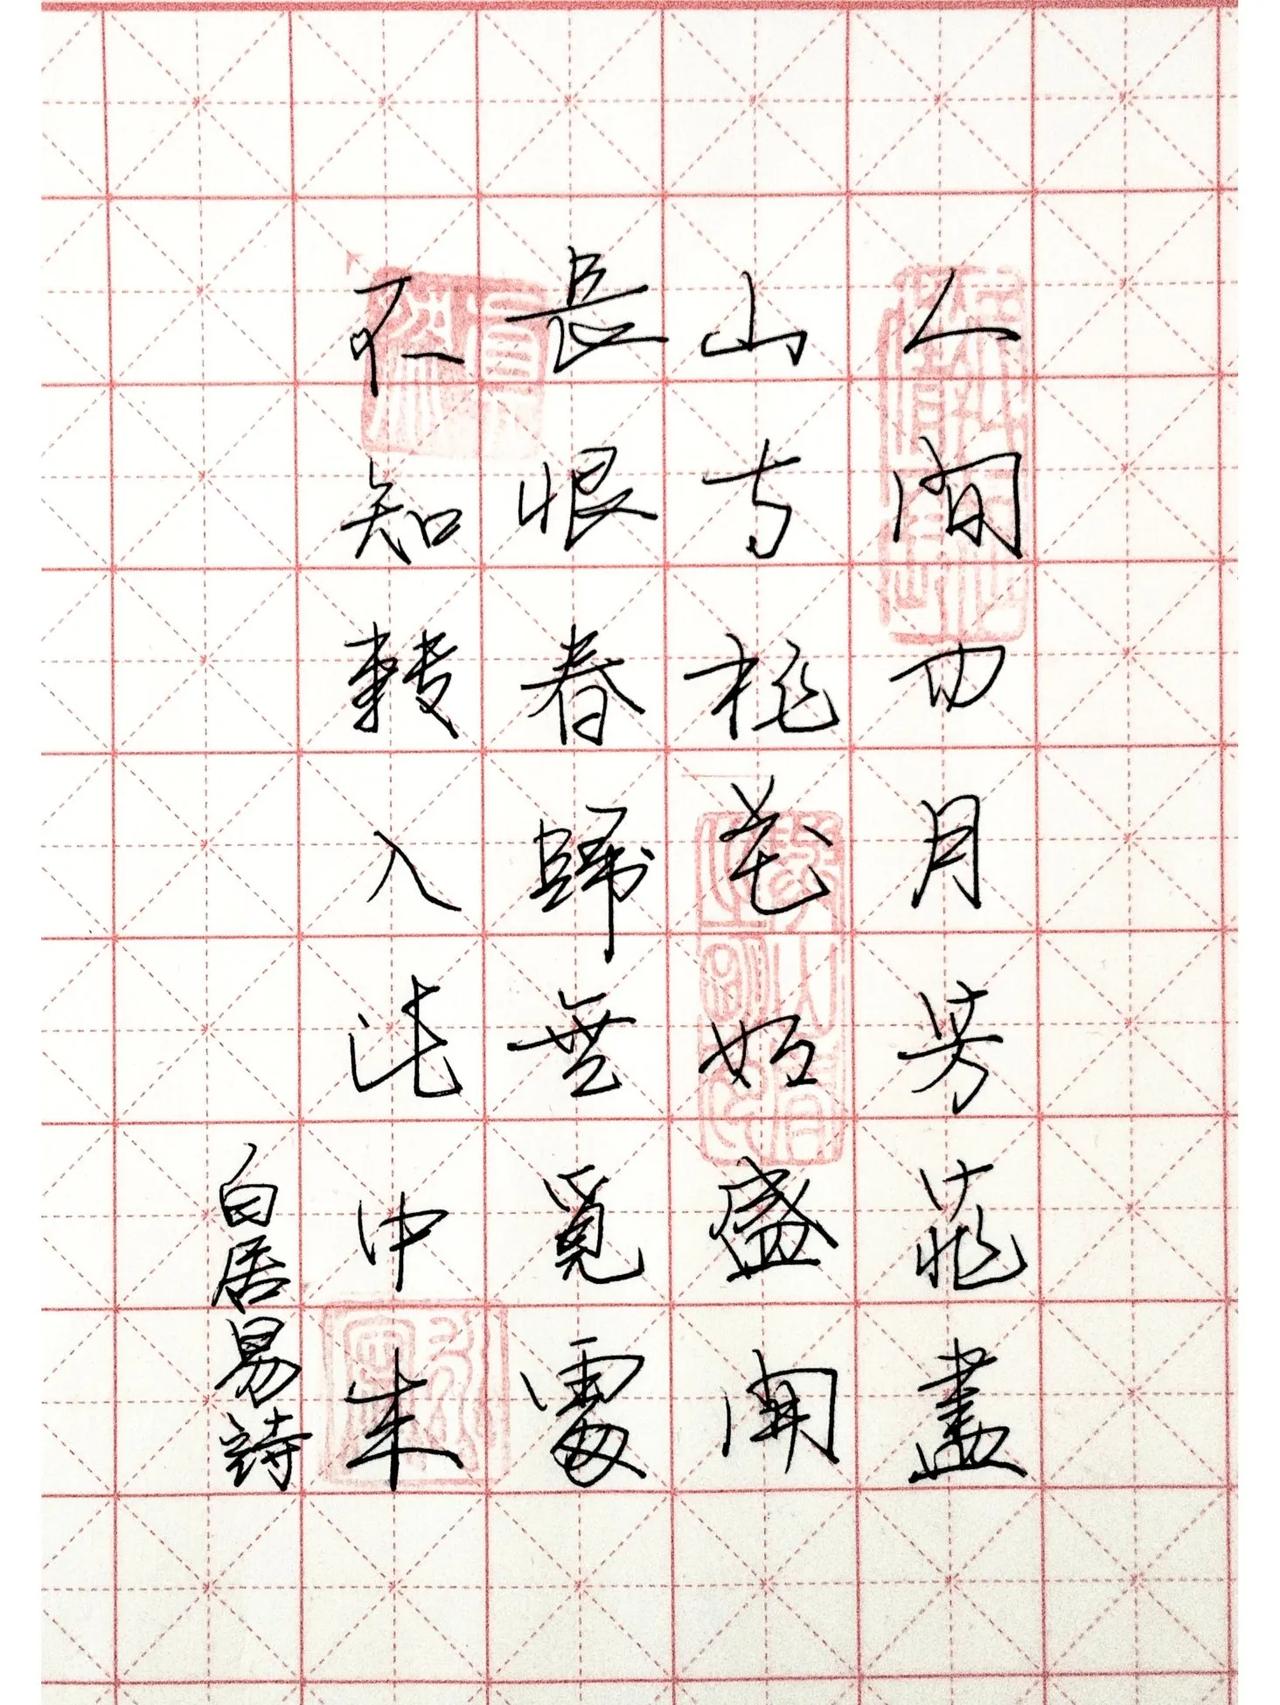 人間四月芳菲盡
山寺桃花始盛開
長恨春歸無覓處
不知轉入此中来
白居易詩